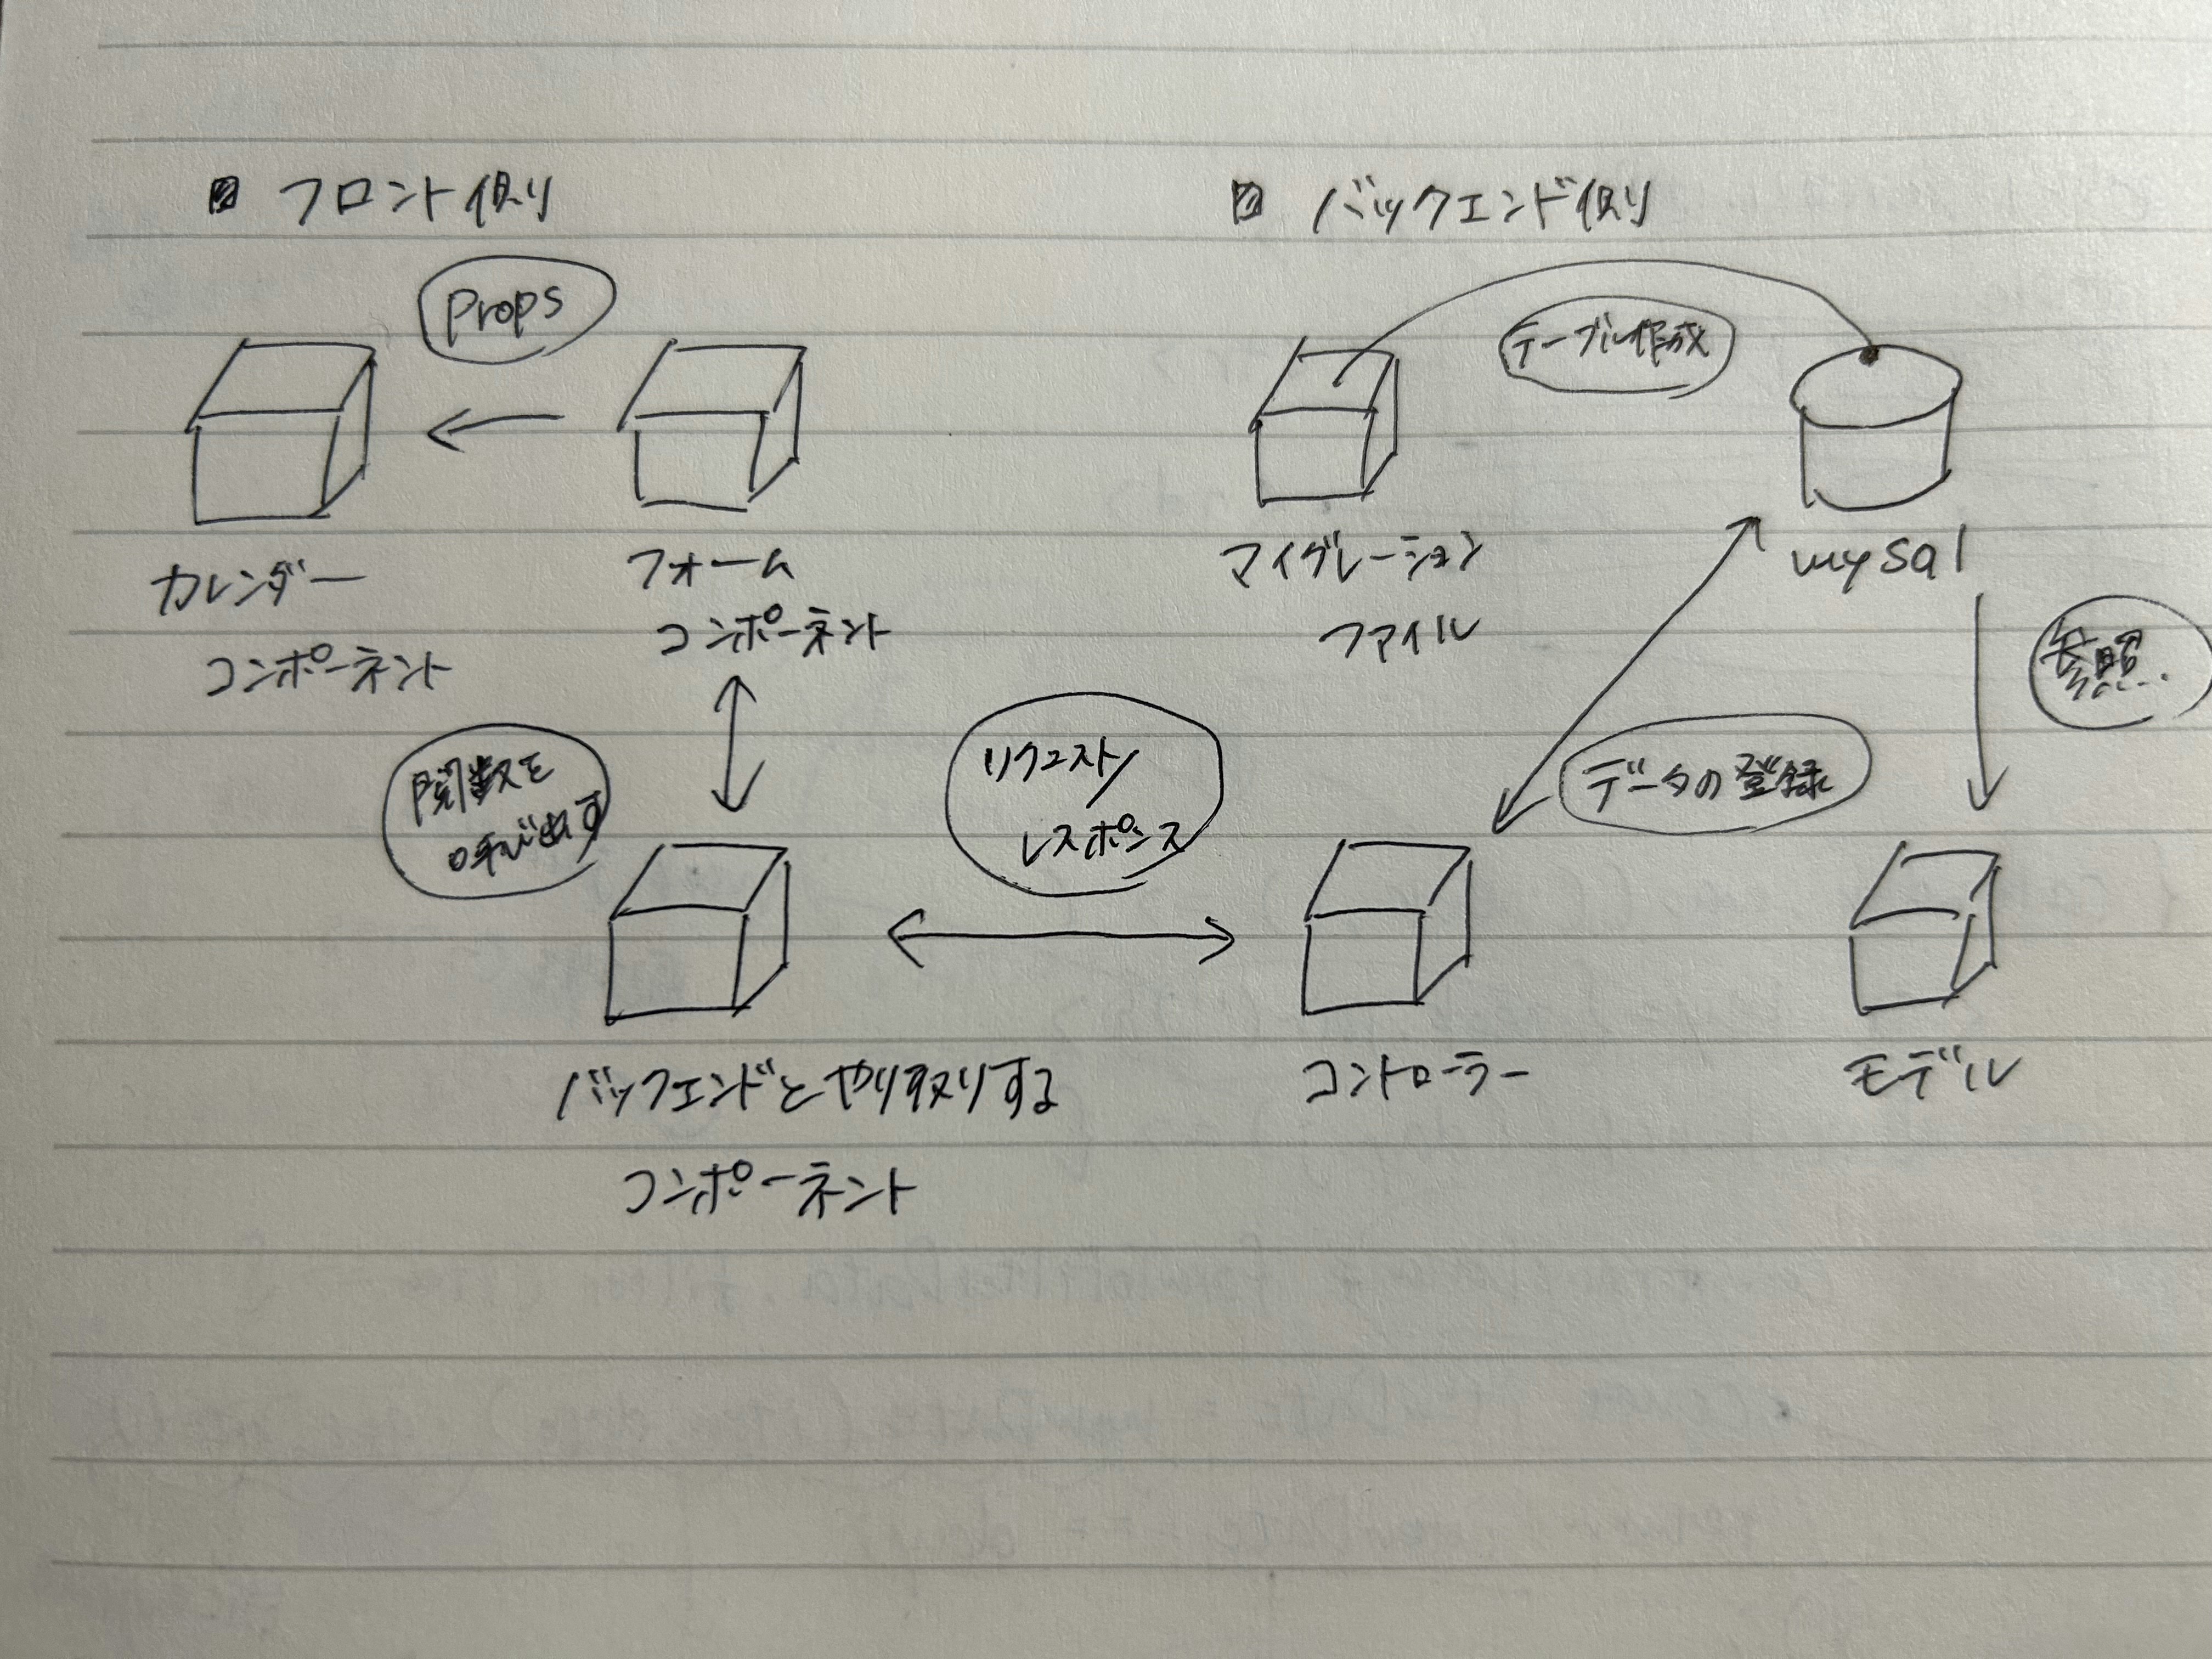 フロント側
バックエンド側
props
テーブル作成
カレンダー
コンポーネント
フォーム
コンポーネント
マイグレーション
ファイル
mysql
参照
関数を
呼び出す
リクエスト/
レスポンス
データの登録
バックエンドとやり取りする
コンポーネント
コントローラー
モデル